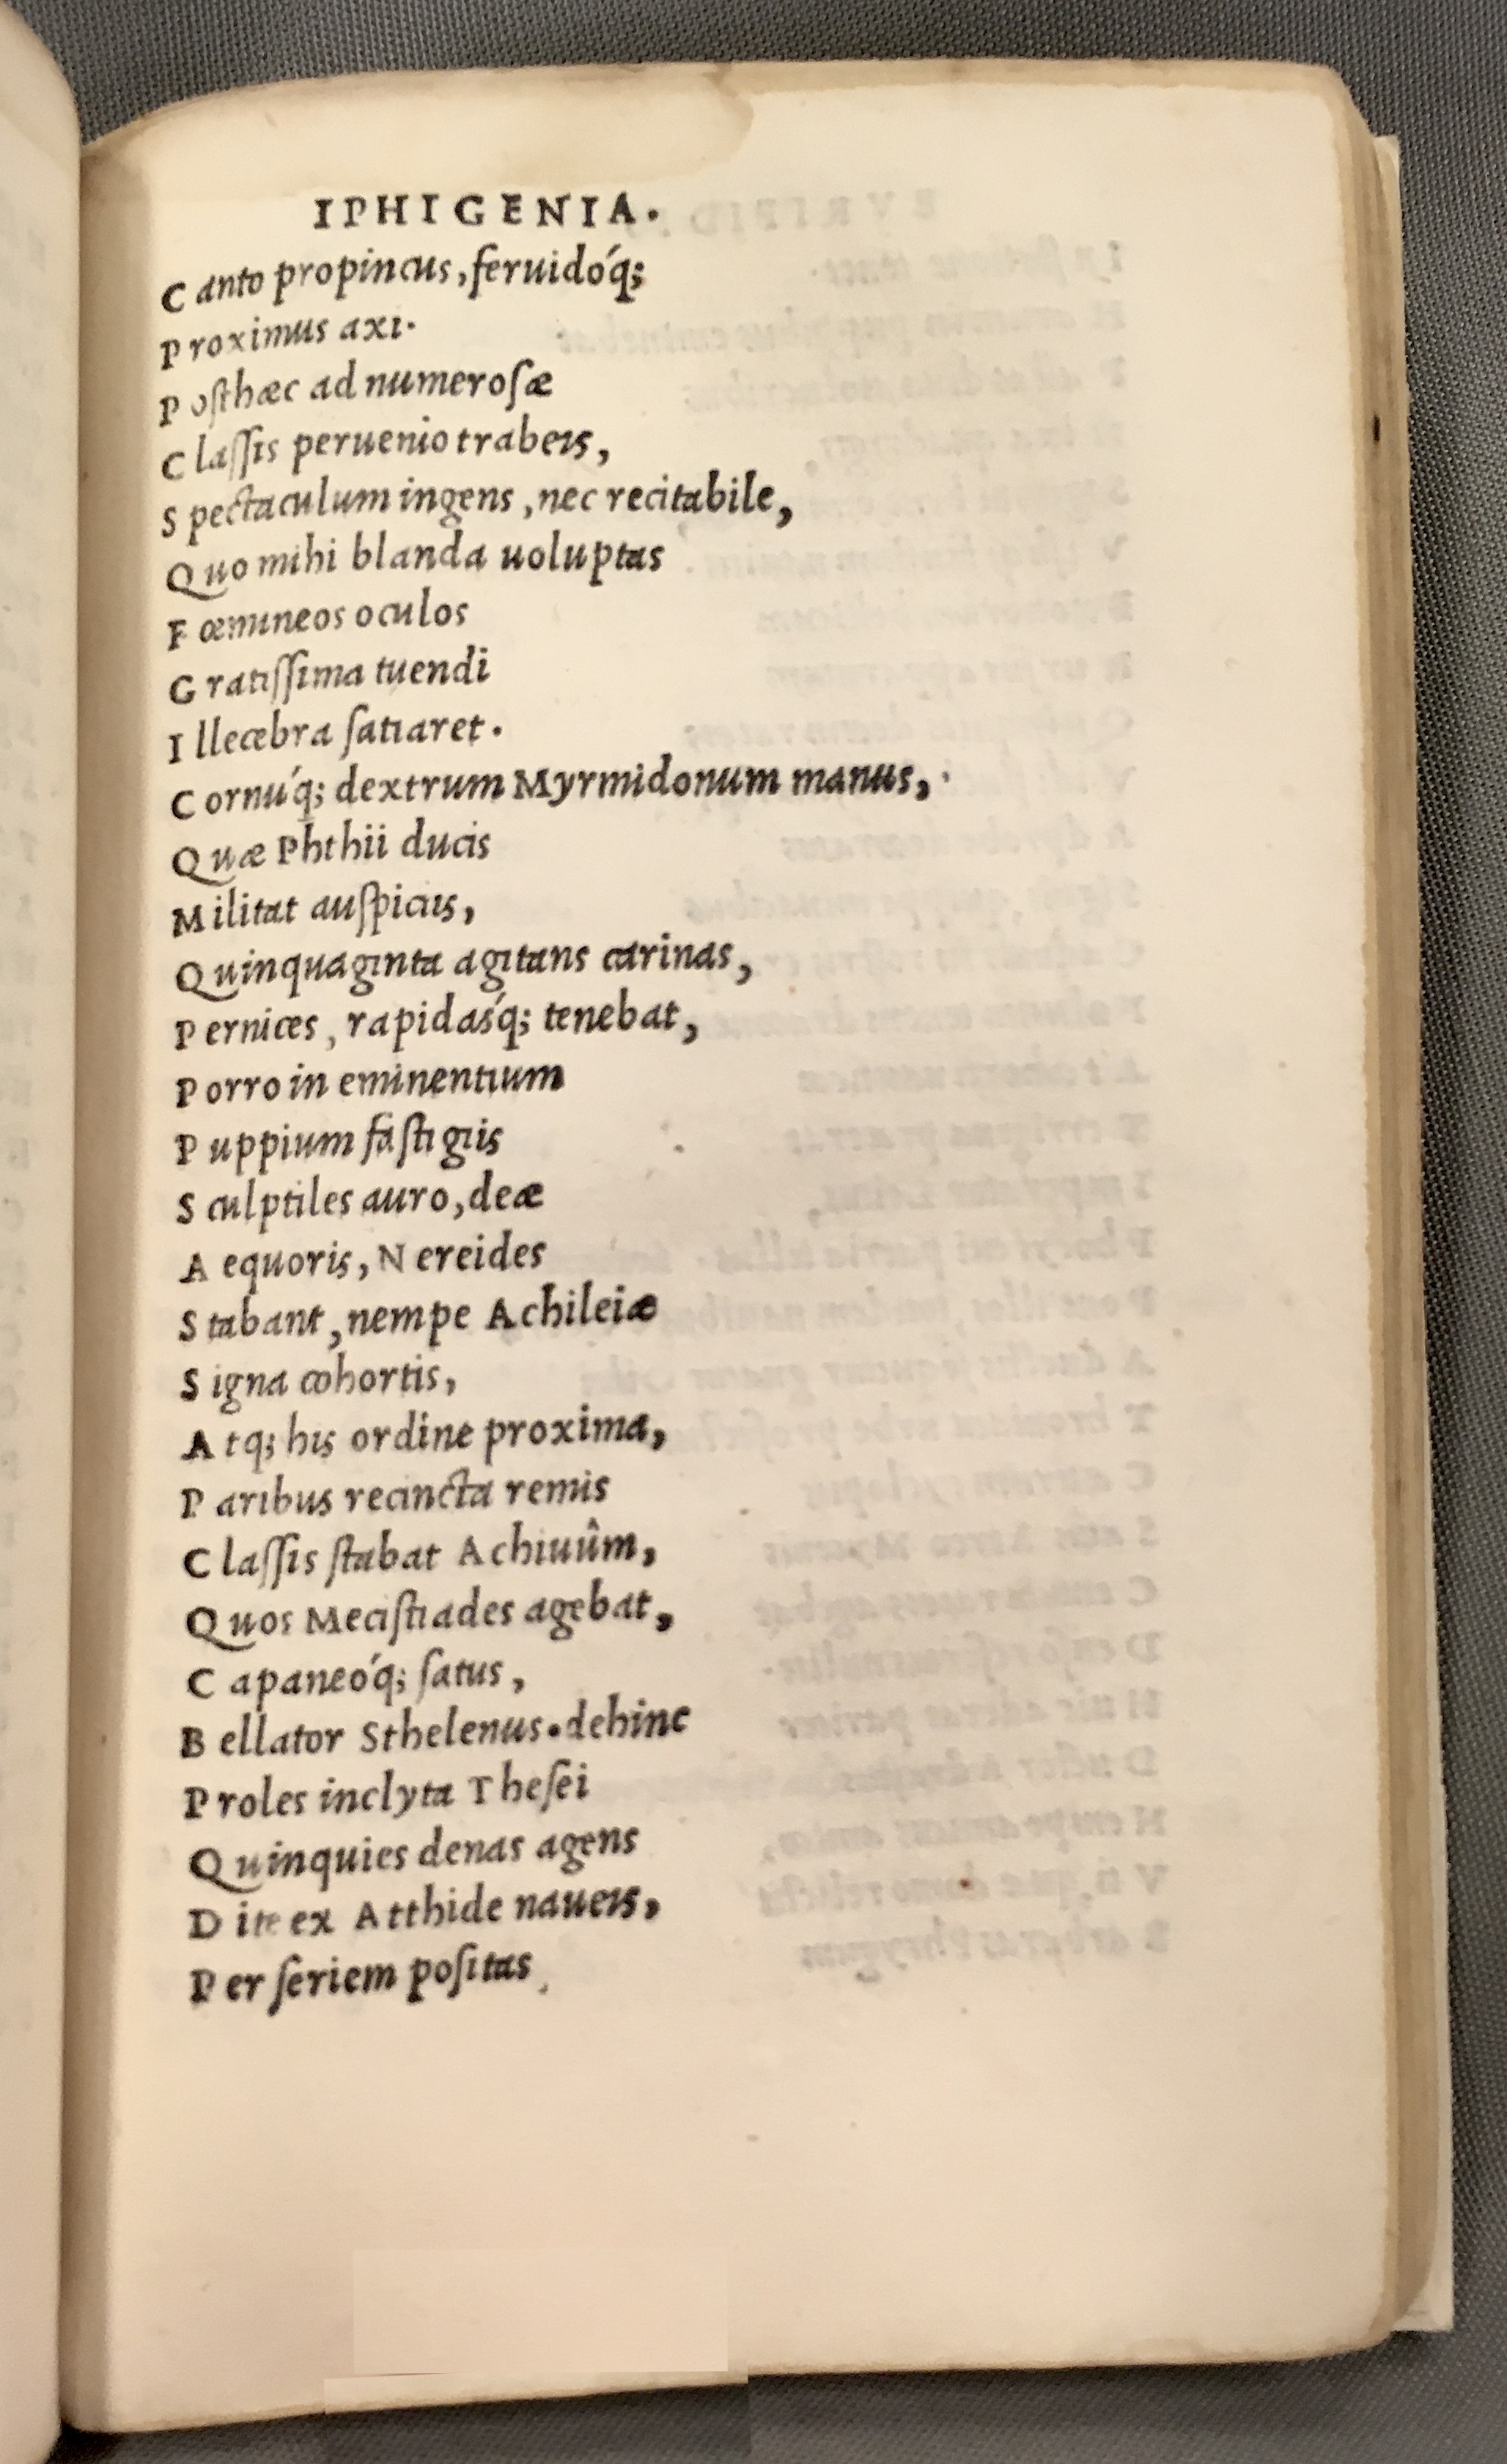 IPHIGENIA.
Canto propincus, feruidóq;
Proximus axi.
Posthæc ad numerosæ
Classis peruenio trabeis,
Spectaculum ingens, nec recitabile,
Quo mihi blanda uoluptas
Fœmineos oculos
Gratissima tuendi
Illecebra satiaret.
Cornúq; dextrum Myrmidonum manus,
Quæ Phthii ducis
Militat auspiciis,
Quinquaginta agitans carinas,
Pernices, rapidasq́; tenebat,
Porro in eminentium
Puppium fastigiis
Sculptiles auro, deæ
Aequoris, Nereides
Stabant, nempe Achileiæ
Signa cohortis,
Atq; his ordine proxima,
Paribus recincta remis
Classis stabat Achiuûm,
Quos Mecistiades agebat,
Capaneóq; satus,
Bellator Sthelenus. dehinc
Proles inclyta Thesei
Quinquies denas agens
Dite ex Atthide naueis,
Per seriem positas